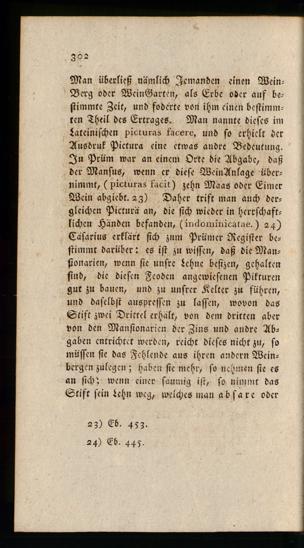 302
Man überließ nämlich Jemanden einen Wein-
Berg oder WeinGarten, als Erbe oder auf be-
stimmte Zeit, und foderte von ihm einen bestimm-
ten Theil des Ertrages. Man nannte dieses im
Lateinischen picturas facere, und so erhielt der
Ausdruk Pictura eine etwas andre Bedeutung.
In Prüm war an einem Orte die Abgabe, daß
der Mansus, wenn er diese WeinAnlage über-
nimmt, (picturas facit) zehn Maas oder Eimer
Wein abgiebt. 23) Daher trift man auch der-
gleichen Picturä an, die sich wieder in herrschaft-
lichen Händen befanden, (indominicatae.) 24)
Cäsarius erklärt sich zum Prümer Register be-
stimmt darüber: es ist zu wissen, daß die Man-
sionarien, wenn sie unsre Lehne besizen, gehalten
sind, die diesen Feoden angewiesenen Pikturen
gut zu bauen, und zu unsrer Kelter zu führen,
und daselbst auspressen zu lassen, wovon das
Stift zwei Drittel erhält, von dem dritten aber
von den Mansionarien der Zins und andre Ab-
gaben entrichtet werden, reicht dieses nicht zu, so
müssen sie das Fehlende aus ihren andern Wein-
bergen zulegen; haben sie mehr, so nehmen sie es
an sich; wenn einer saumig ist, so nimmt das
Stift sein Lehn weg, welches man absare oder
23) Eb. 453.
24) Eb. 445.